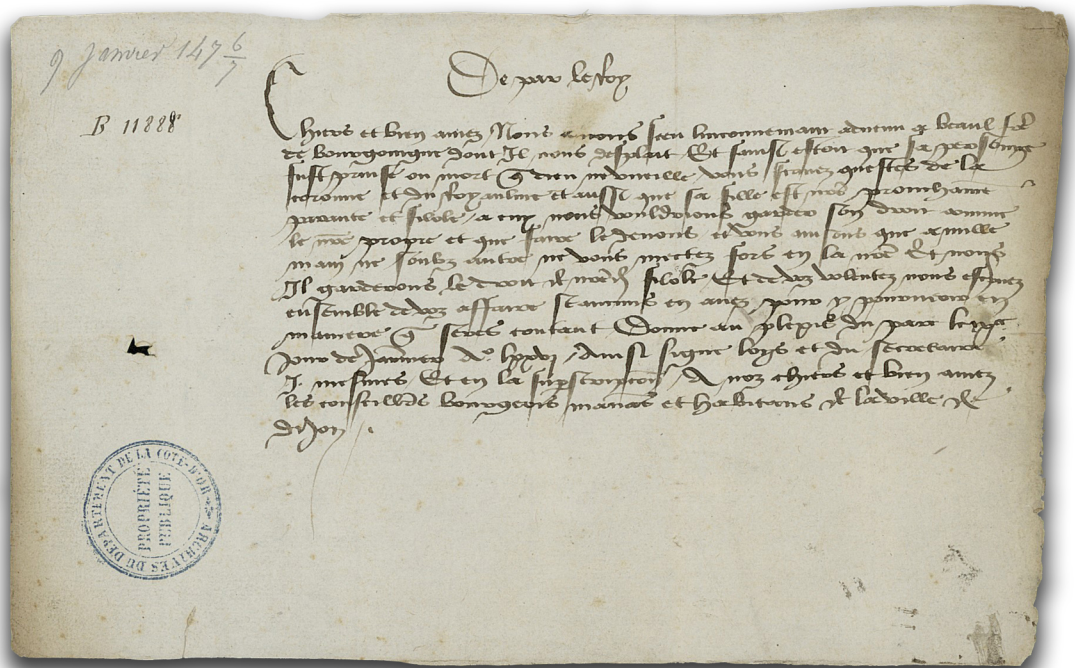 9 Janvier 147 6/7
B 11888
De par le Roy
Chiers et bien amez Nous avons sceu linconvenient advenu a beaul frere
de bourgoingne dont Il nous desplait Et sainsi estoit que sa personne
fust prinse ou mort que dieu ne vueille vous scavez questes de la
coronne et du Royaulme Et aussi que sa fille est nostre prouchaine
parante et filole a qui nous vouldrions garder son droit comme
le nostre propre et que faire le devons et vous avisons que a nulle
main ne soubz autre ne vous mectez fors en la nostre Et nous
Il garderons le droit de nostredicte filole Et de voz voulentez nous escripvez
ensemble de voz affaires se aucuns en avez pour y pourveoir en
maniere que serez contant Donne au plexis du parc le ixe
Jour de Janvier Ao lxxvi Ainsi signe loys et du secretaire
J. mesmes Et en la superscription A noz chiers et bien amez
les conseilliers bourgeois manans et habitans de la ville de
dijon
ARCHIVES DU DÉPARTEMENT DE LA CÔTE-D'OR
PROPRIÉTÉ
PUBLIQUE